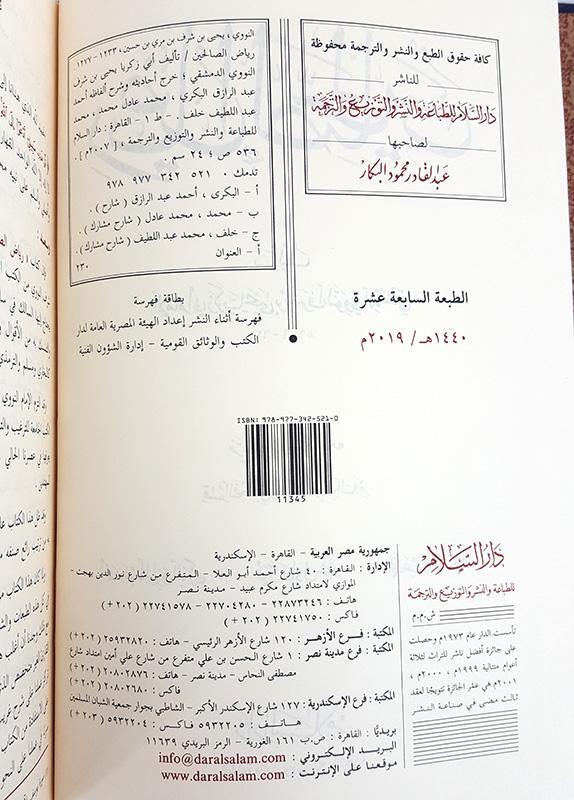 كافة حقوق الطبع والنشر والترجمة محفوظة
للناشر
دار السلام للطباعة والنشر والتوزيع والترجمة
لصاحبها
عبد القادر محمود البكار
النووي، يحيى بن شرف بن مري بن حسين، ١٢٣٣ - ١٢٧٧.
رياض الصالحين / تأليف أبي زكريا يحيى بن شرف
النووي الدمشقي ؛ خرج أحاديثه وشرح ألفاظه أحمد
عبد الرازق البكري، محمد عادل محمد، محمد
عبد اللطيف خلف . - ط ١ - القاهرة : دار السلام
للطباعة والنشر والتوزيع والترجمة، [ ٢٠٠٧م ].
٥٣٦ ص ؛ ٢٤ سم .
تدمك ٠ ٥٢١ ٣٤٢ ٩٧٧ ٩٧٨
أ - البكرى، أحمد عبد الرازق ( شارح ) .
ب - محمد، محمد عادل ( شارح مشارك ) .
ج - خلف، محمد عبد اللطيف ( شارح مشارك ).
أ - العنوان
٢٣٠
بطاقة فهرسة
فهرسة أثناء النشر إعداد الهيئة المصرية العامة لدار
الكتب والوثائق القومية - إدارة الشؤون الفنية
الطبعة السابعة عشرة
١٤٤٠هـ / ٢٠١٩م
ISBN: 978-977-342-521-0
11345
دار السلام
للطباعة والنشر والتوزيع والترجمة
ش.م.م
تأسست الدار عام ١٩٧٣م وحصلت
على جائزة أفضل ناشر للتراث لثلاثة
أعوام متتالية ١٩٩٩م ، ٢٠٠٠م ،
٢٠٠١م هي عشر الجائزة تتويجًا لعقد
ثالث مضى في صناعة النشر
جمهورية مصر العربية - القاهرة - الإسكندرية
الإدارة : القاهرة : ٤٠ شارع أحمد أبو العلا - المتفرع من شارع نور الدين بهجت -
الموازي لامتداد شارع مكرم عبيد - مدينة نصر
هاتف : ٢٢٨٧٣٢٤٦ - ٢٢٧٠٤٢٨٠ - ٢٢٧٤١٥٧٨ ( ٢٠٢ + )
فاكس : ٢٢٧٤١٧٥٠ ( ٢٠٢ + )
المكتبة : فرع الأزهر : ١٢٠ شارع الأزهر الرئيسي - هاتف : ٢٥٩٣٢٨٢٠ ( ٢٠٢ + )
المكتبة : فرع مدينة نصر : ١ شارع الحسن بن علي متفرع من شارع علي أمين امتداد شارع
مصطفى النحاس - مدينة نصر - هاتف : ٢٠٨٠٢٨٧٦ ( ٢٠٢ + )
فاكس : ٢٠٨٠٢٦٨٠ ( ٢٠٢ + )
المكتبة : فرع الإسكندرية : ١٢٧ شارع الإسكندر الأكبر - الشاطبي بجوار جمعية الشبان المسلمين
هاتف : ٥٩٣٢٢٠٥ فاكس : ٥٩٣٢٢٠٤ ( ٢٠٣ + )
بريديًا : القاهرة : ص.ب ١٦١ الغورية - الرمز البريدي ١١٦٣٩
البريد الإلكتروني : info@daralsalam.com
موقعنا على الإنترنت : www.daralsalam.com